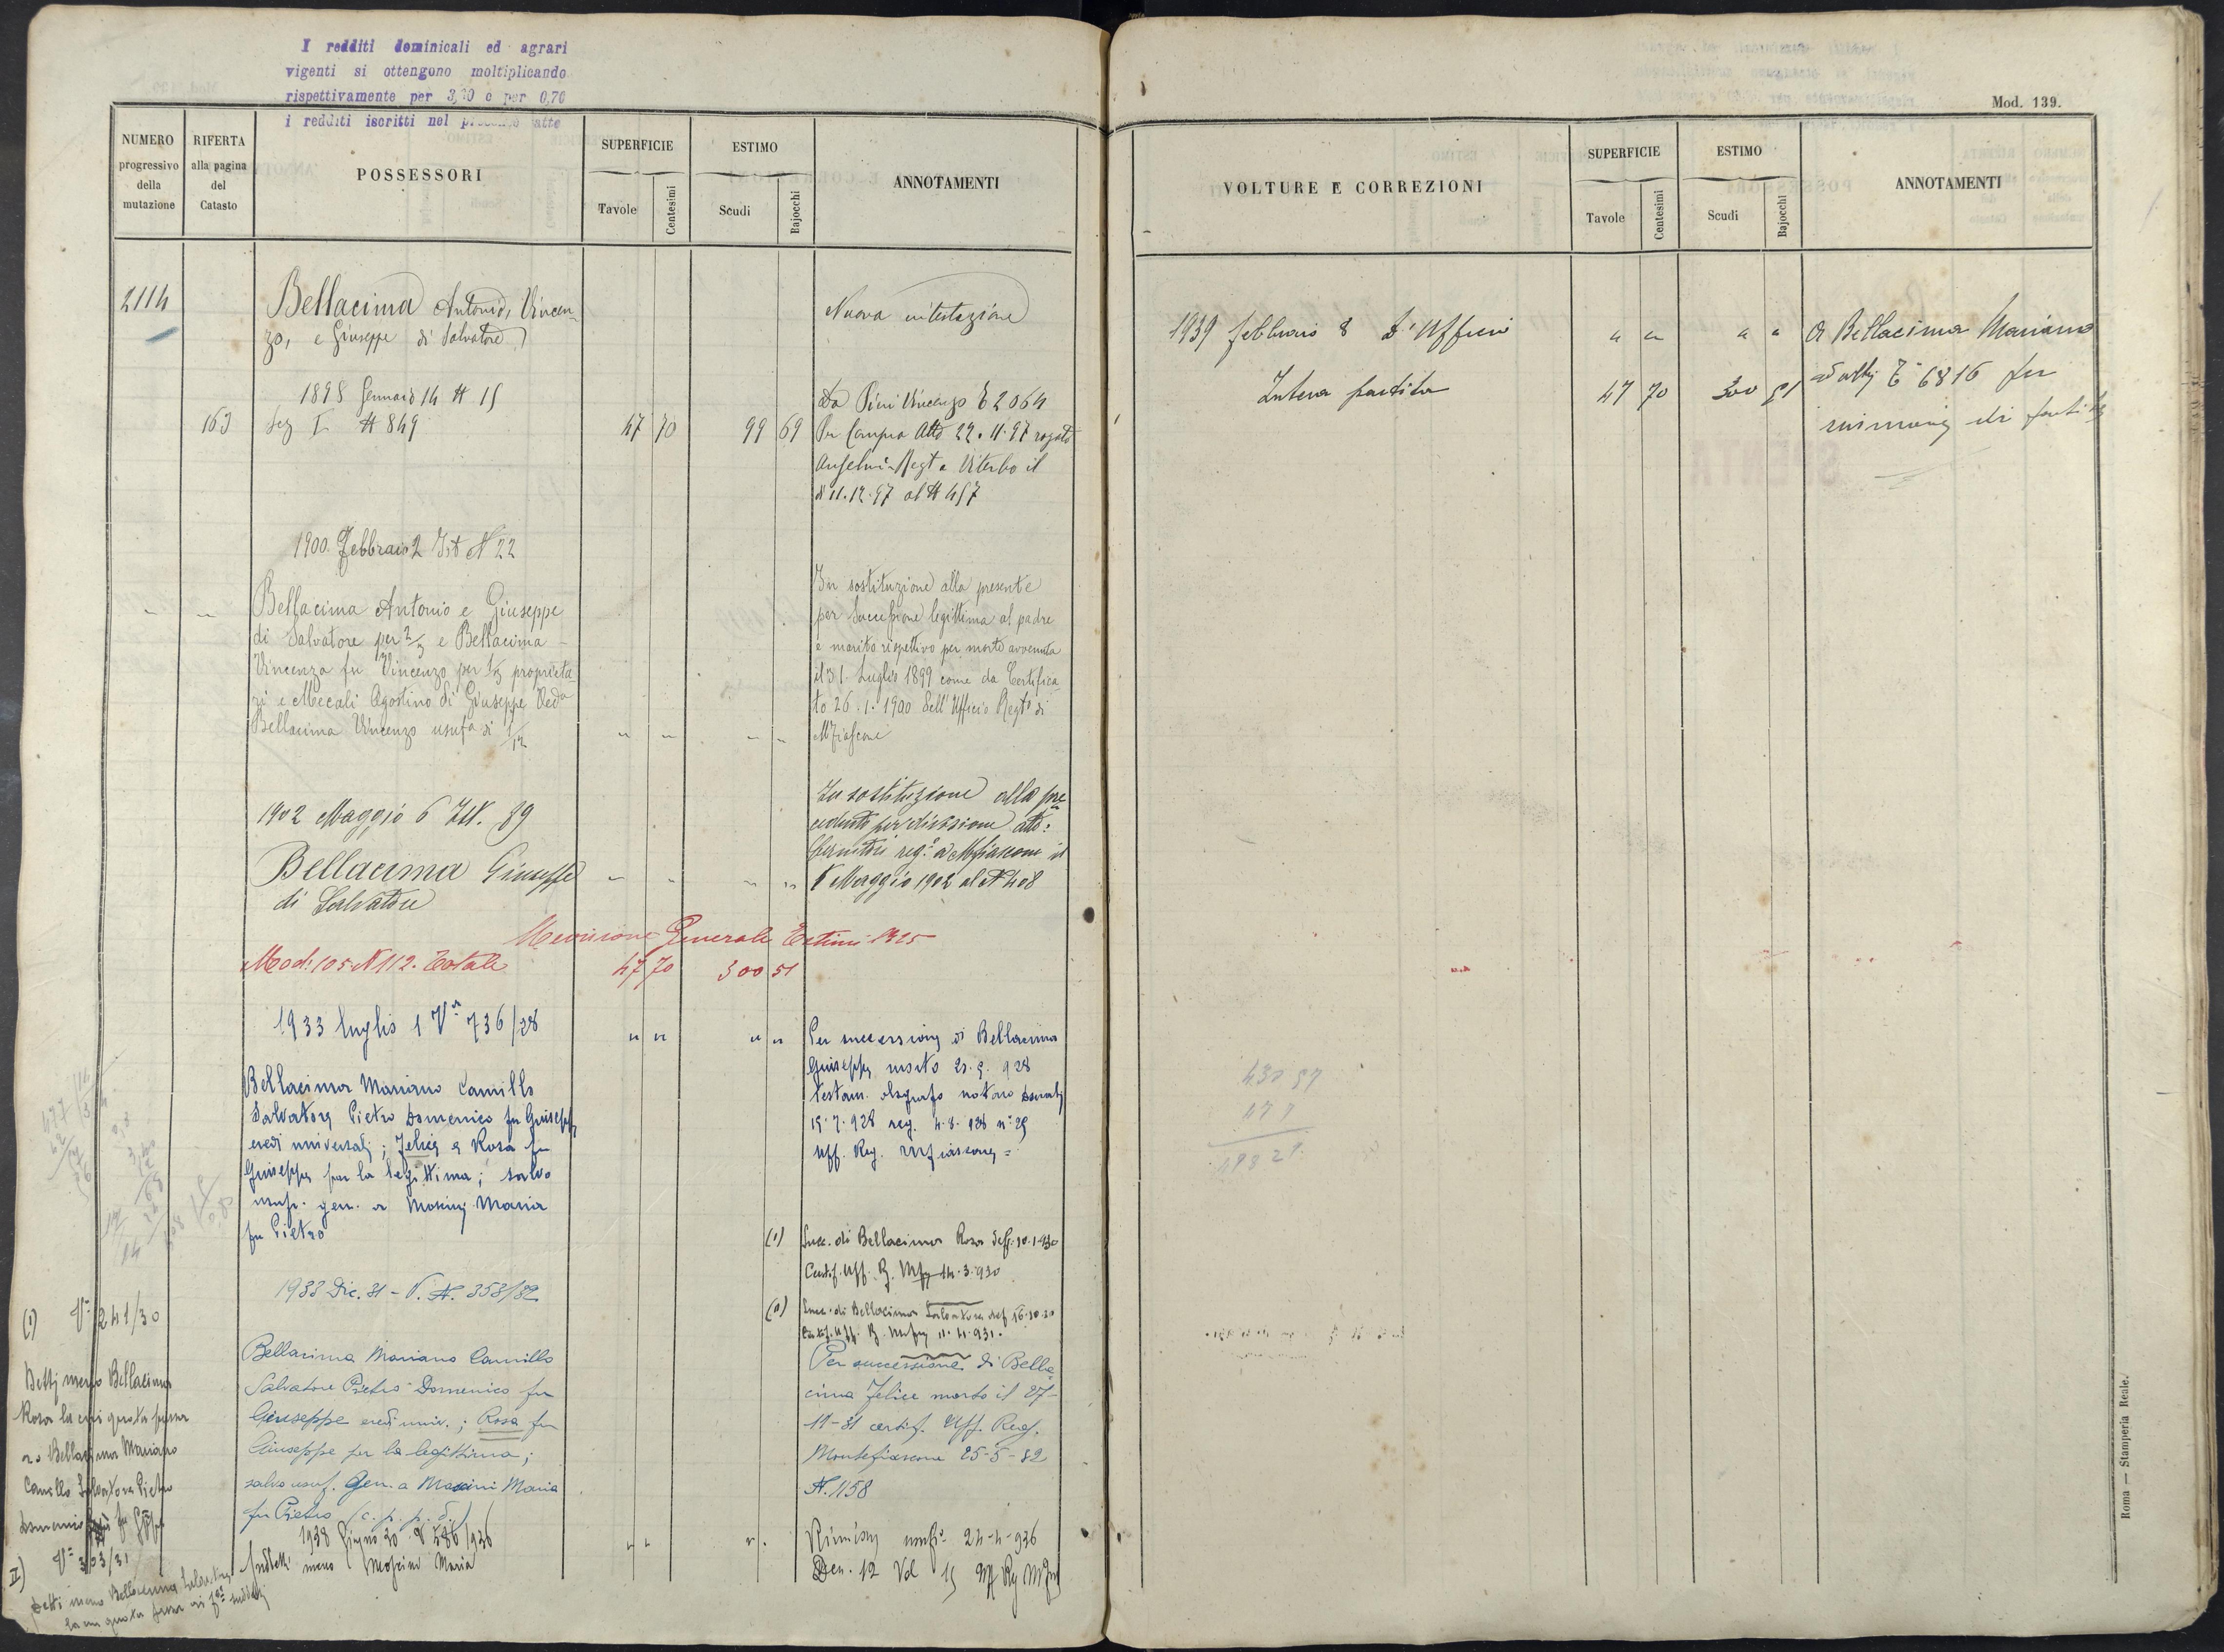 I redditi dominicali ed agrari
vigenti si ottengono moltiplicando
rispettivamente per 3,20 e per 0,70
i redditi iscritti nel presente atto
NUMERO
progressivo
della
mutazione
RIFERTA
alla pagina
del
Catasto
POSSESSORI
SUPERFICIE
Tavole
Centesimi
ESTIMO
Scudi
Bajocchi
ANNOTAMENTI
2114
Bellacima Antonio, Vincen-
zo, e Giuseppe di Salvatore
Nuova intestazione
1898 Gennaio 14 N 15
163 Sez I N 849 47 70 99 69
Da Pieri Vincenzo T 2064
Per Compra Atto 22.11.97 rogito
Anselmi Regt a Viterbo il
dì 11.12.97 al N 457
1900 Febbraio 2 Ist N 22
Bellacima Antonio e Giuseppe
di Salvatore per 2/3 e Bellacima
Vincenza fu Vincenzo per 1/3 proprieta-
ri e Mecali Agostina di Giuseppe Veda
Bellacima Vincenzo usufa di 1/12
In sostituzione alla presente
per Successione legittima al padre
e marito rispettivo per morte avvenuta
il 31 Luglio 1899 come da Certifica-
to 26.1.1900 dell'Ufficio Regto di
Mfiascone
1902 Maggio 6 Ist. 89
Bellacima Giuseppe
di Salvatore
In sostituzione alla pre
cedente per divisione atto:
reg.o a Mfiascone il
Maggio 1902 al N 408
Revisione Generale Estimi 1925
Mod. 105 N 112. Totale 47 70 300 51
1933 luglio 1 Va 736/28
Bellacima Mariano Camillo
Salvatore Pietro Domenico fu Giuseppe
eredi universali; Felice e Rosa fu
Giuseppe per la legittima; salvo
usuf. gen. a Moscini Maria
fu Pietro
Per successione di Bellacima
Giuseppe morto 21.5.928
testam. olografo notaro
15.7.928 reg. 4.8.928 n° 29
Uff. Reg. Mfiascone =
(1) Succ. di Bellacima Rosa def. 10.1.930
Certif. Uff. R. Mfne 14.3.930
(2) Succ. di Bellacima Salvatore def 16.10.30
Certif. Uff. R. Mfne 11.4.931.
1933 Dic. 31 - V. N. 358/32
Bellacima Mariano Camillo
Salvatore Pietro Domenico fu
Giuseppe eredi univ.; Rosa fu
Giuseppe per la legittima;
salvo usuf. Gen. a Moscini Maria
fu Pietro (c. p. p. d.)
Per successione di Bella
cima Felice morto il 27-
11-31 certif. Uff. Reg.
Montefiascone 25-5-32
N. 1158
1938 Giugno 30 V 586/936
Suddetti meno Moscini Maria
Riunione usuf. 24-4-936
Den. 12 Vol 15 Uff Rg Mfne
(1) Va 241/30
Detti meno Bellacima
Rosa la cui quota passa
a Bellacima Mariano
Camillo Salvatore Pietro
Domenico fu Gppe
II) Va 303/31
Detti meno Bellacima Salvatore
la cui quota passa ai flli suddetti
Mod. 139.
VOLTURE E CORREZIONI
SUPERFICIE
Tavole
Centesimi
ESTIMO
Scudi
Bajocchi
ANNOTAMENTI
1939 febbraio 8 D'Ufficio
Intera partita 47 70 300 51
A Bellacima Mariano
ed altri T° 6816 per
riunione di partite
430 57
47 7
478 27
Roma — Stamperia Reale.